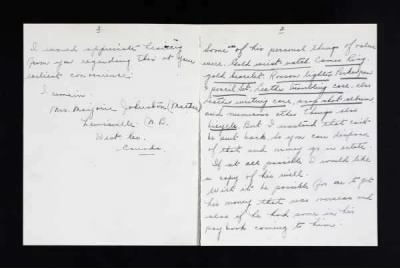 2
Some of his personal things of value
were. Gold wrist watch Cameo Ring,
gold bracelet. Ronson lighter Parker pen
& pencil set. Leather travelling case. also
leather writing case, snap shot album
and numerous other things also
bicycle. But I understand that can't
be sent back so you can dispose
of that and money go in estate.
If at all possible I would like
a copy of his will.
Will it be possible for me to get
his money that was overseas and
also if he had some in his
pay book coming to him.
3
I would appreciate hearing
from you regarding this at your
earliest convenience.
I remain.
Mrs. Marjorie Johnston (Mother)
Lewisville N.B.
West Co.
Canada